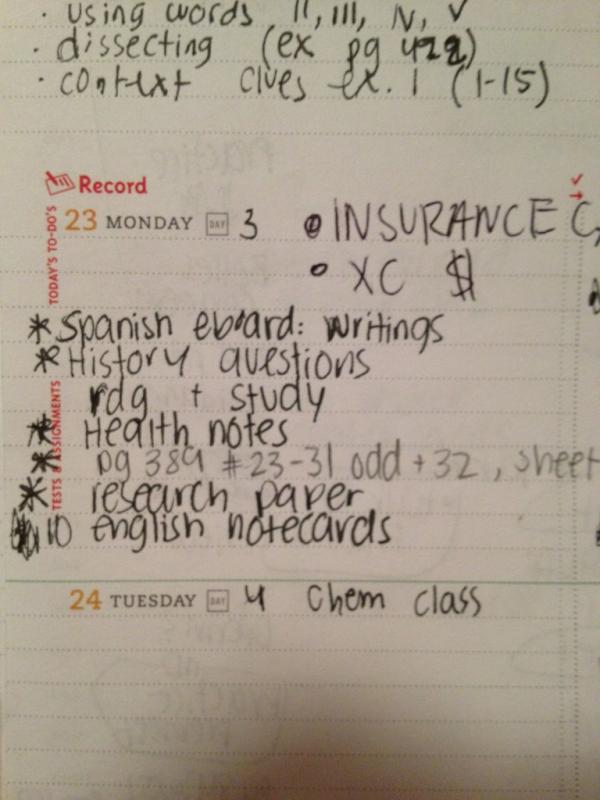 · using words II, III, IV, V
· dissecting (ex pg 422)
· context clues ex. 1 (1-15)
Record
TODAY'S TO-DO'S
23 MONDAY DAY 3 • INSURANCE C
• XC $
* Spanish eboard: writings
* History questions
rdg + study
TESTS & ASSIGNMENTS
* Health notes
* pg 389 #23-31 odd + 32, sheet
* research paper
10 english notecards
24 TUESDAY DAY 4 Chem class